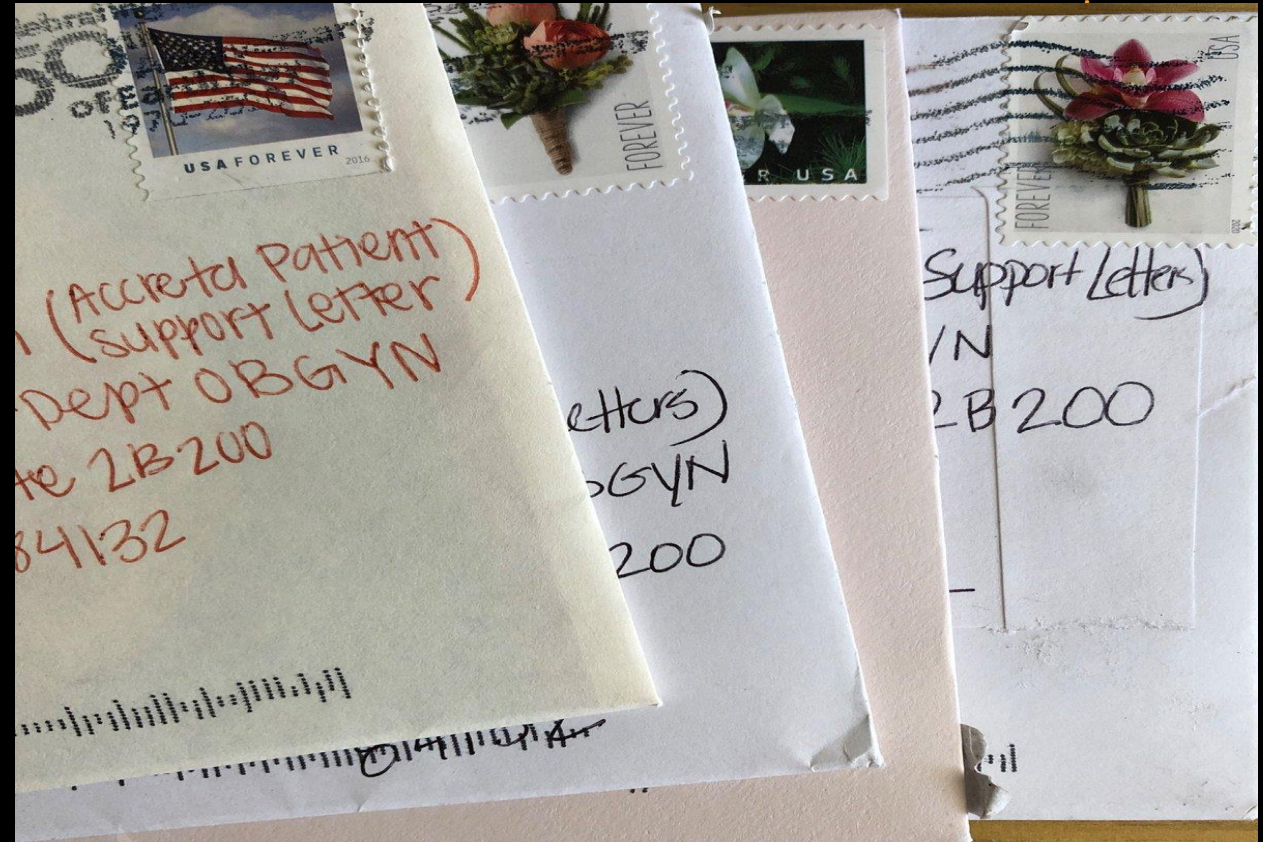 50
OF
USA FOREVER 2016
(Accreta Patient
(support Letter)
Dept OBGYN
2B200
84132
FOREVER
etters)
GYN
200
R USA
FOREVER
USA
2020
Support Letters)
YN
2B 200